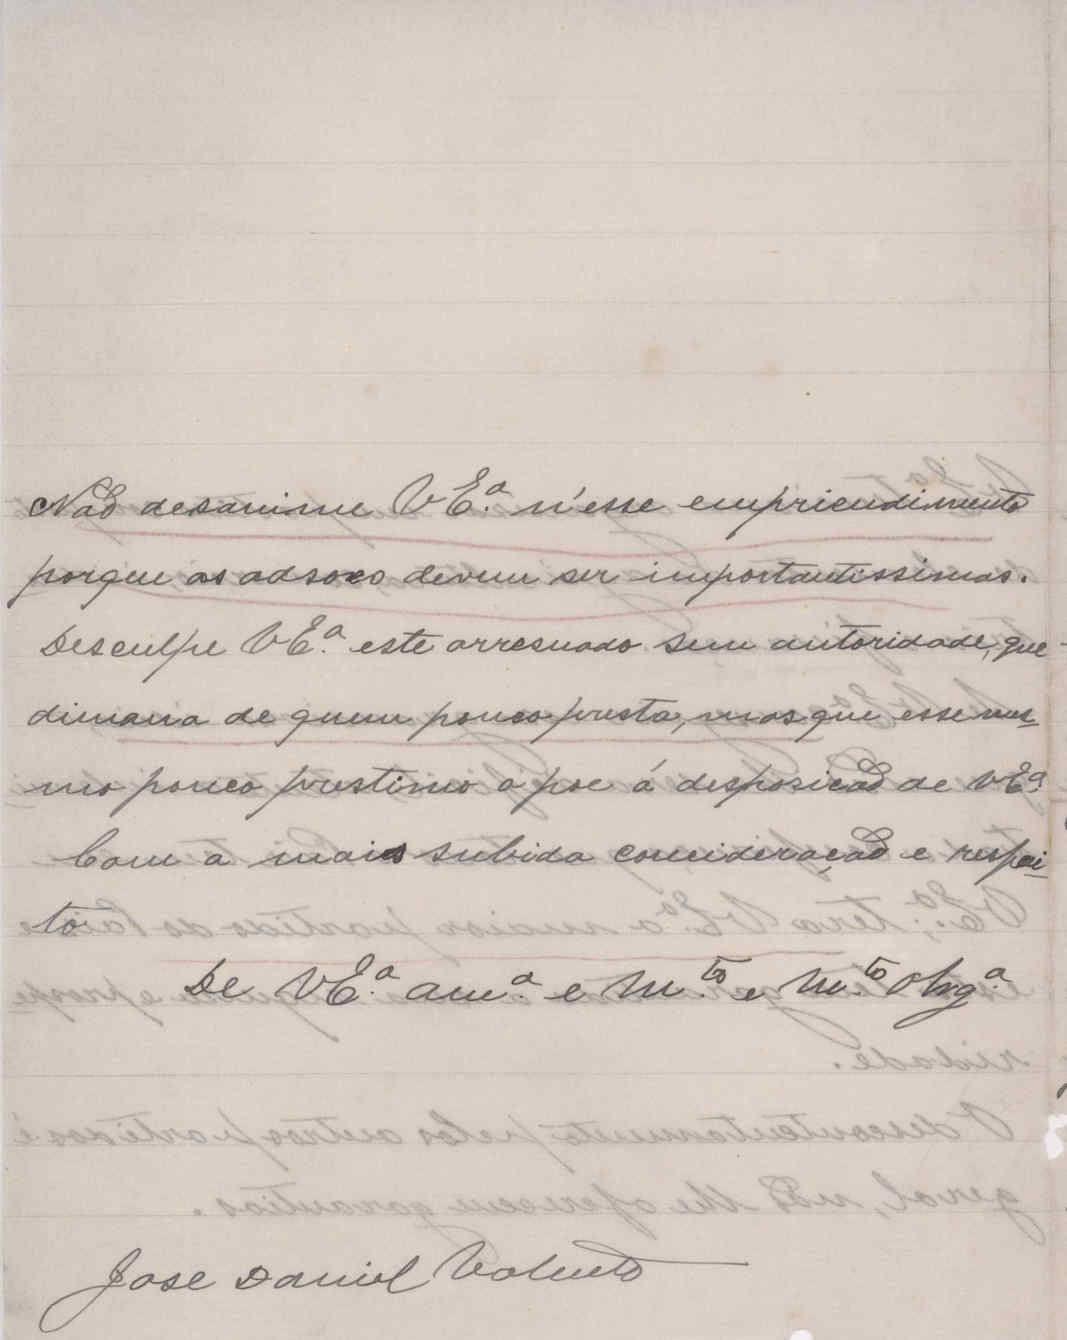 Não desanime VEª. n'esse empriendimento
porque as adsoes devem ser importantissimas.
Desculpe VEª. este arresuado sem autoridade, que
dimana de quem pouco presta, mas que esse mes-
mo pouco prestimo o poe á desposicão de VEª.
Com a mais subida concideração e respei-
to
De VEª. amº. e Mto. e Mto. Obrgº.
Jose Daniel